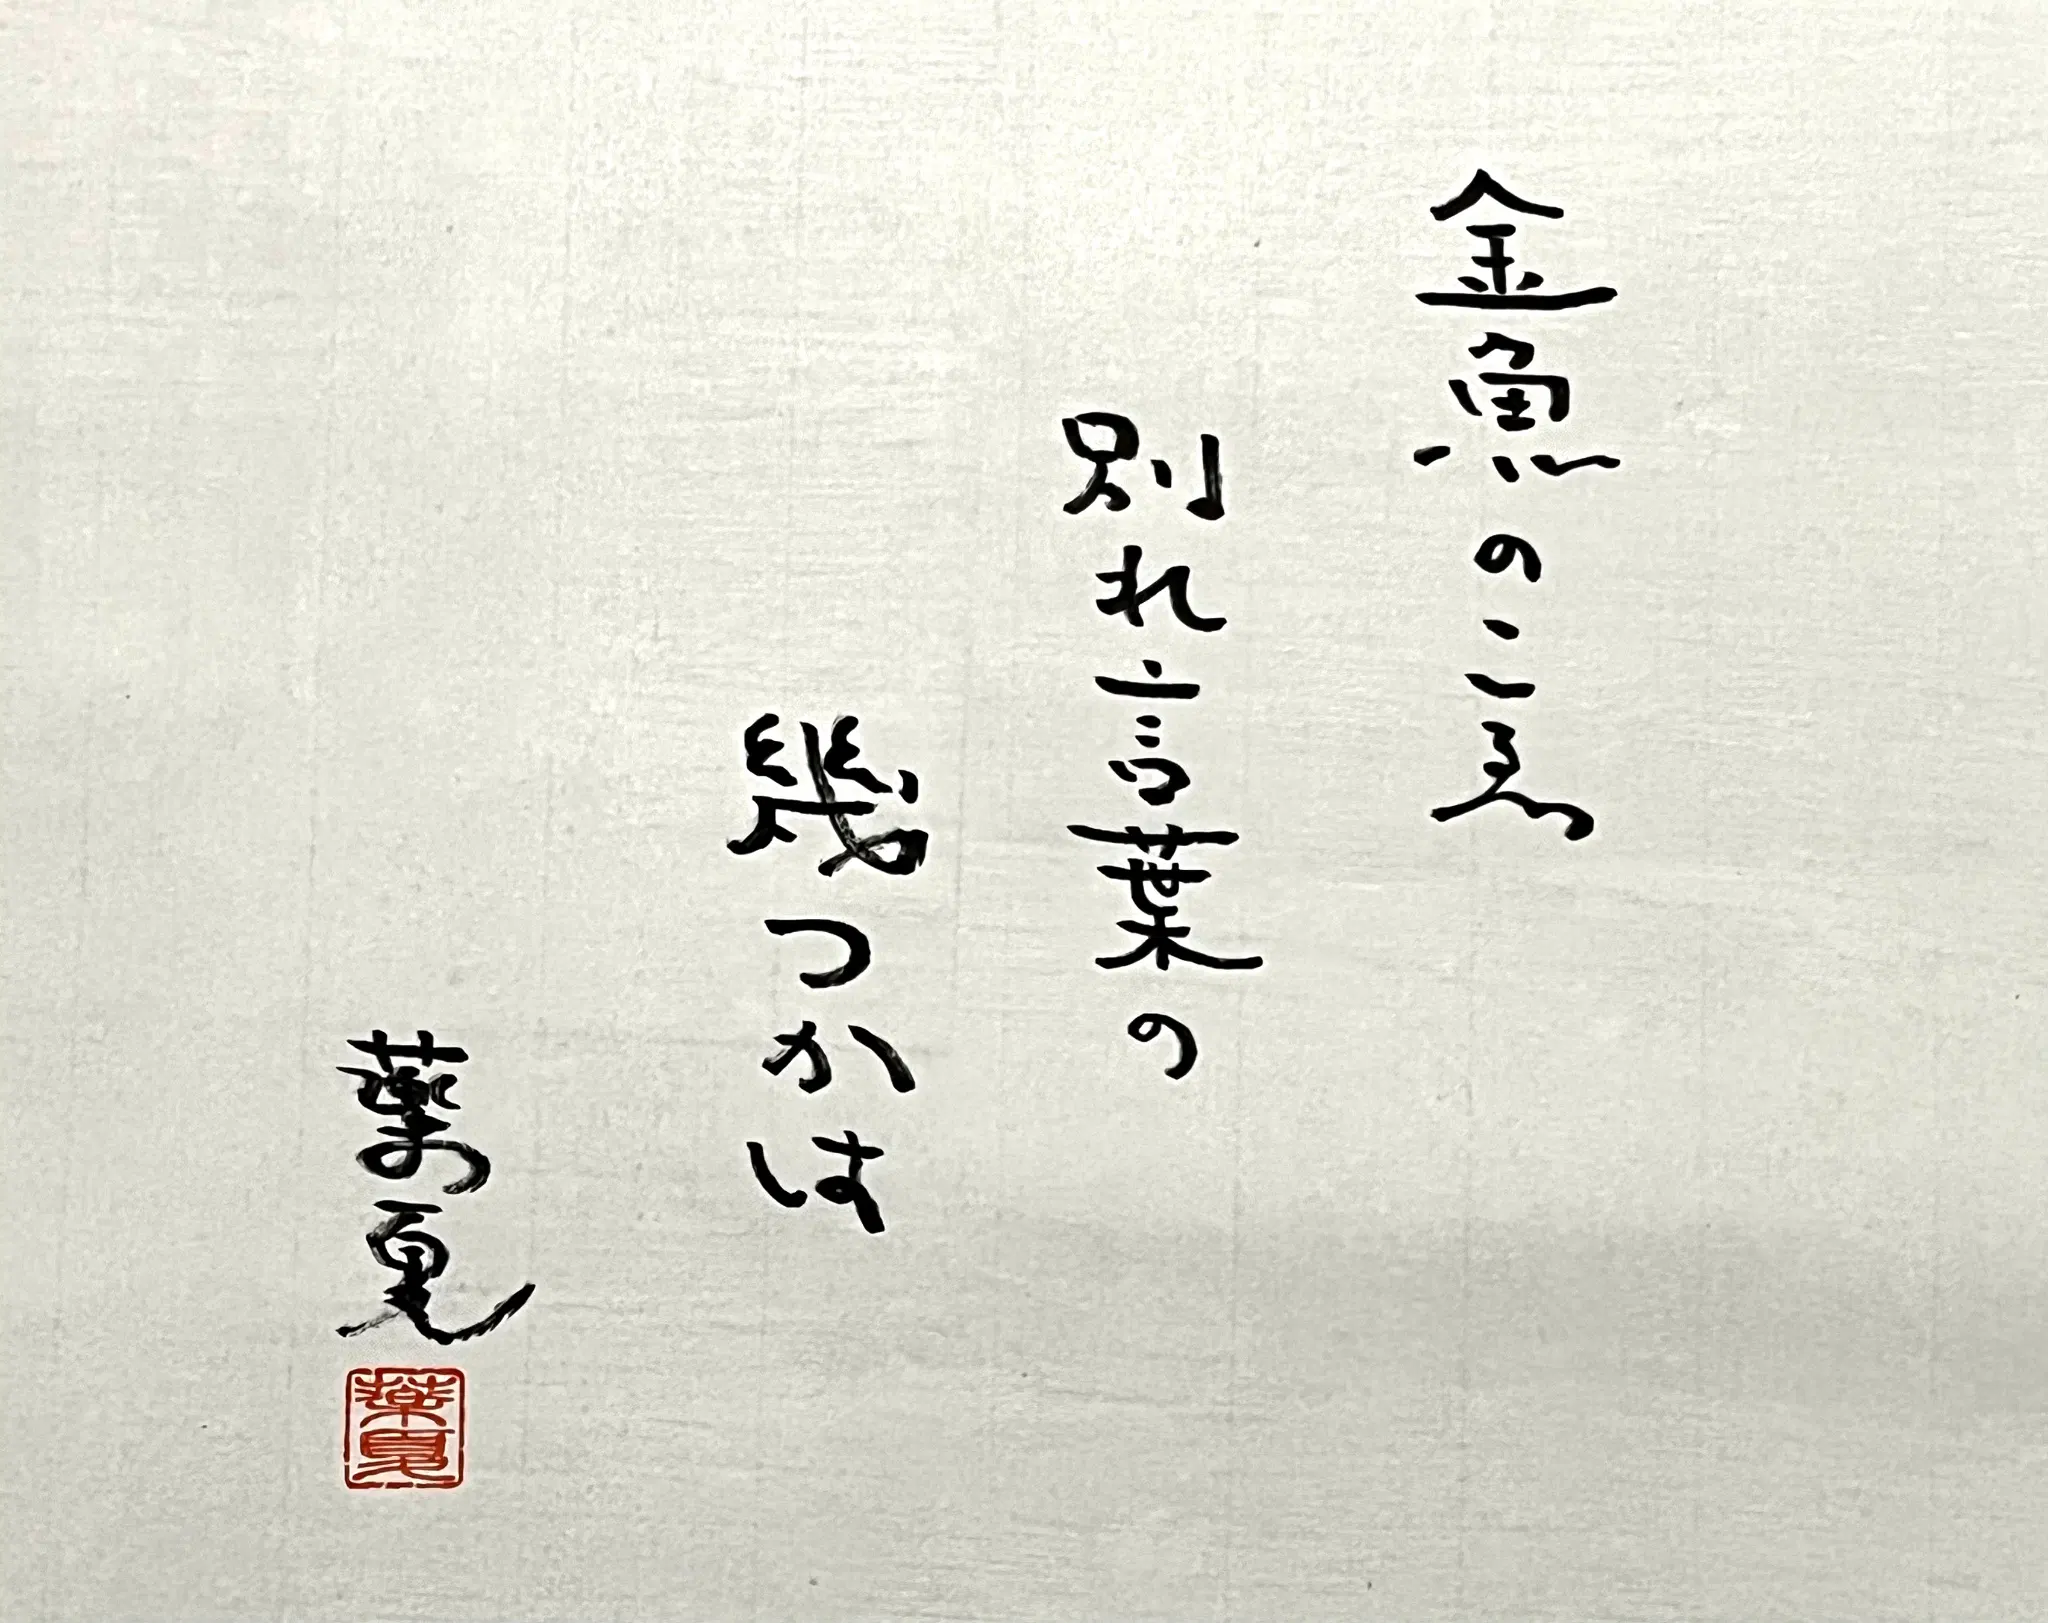 金魚のこゑ
別れ言葉の
幾つかは
薬夏
薬夏